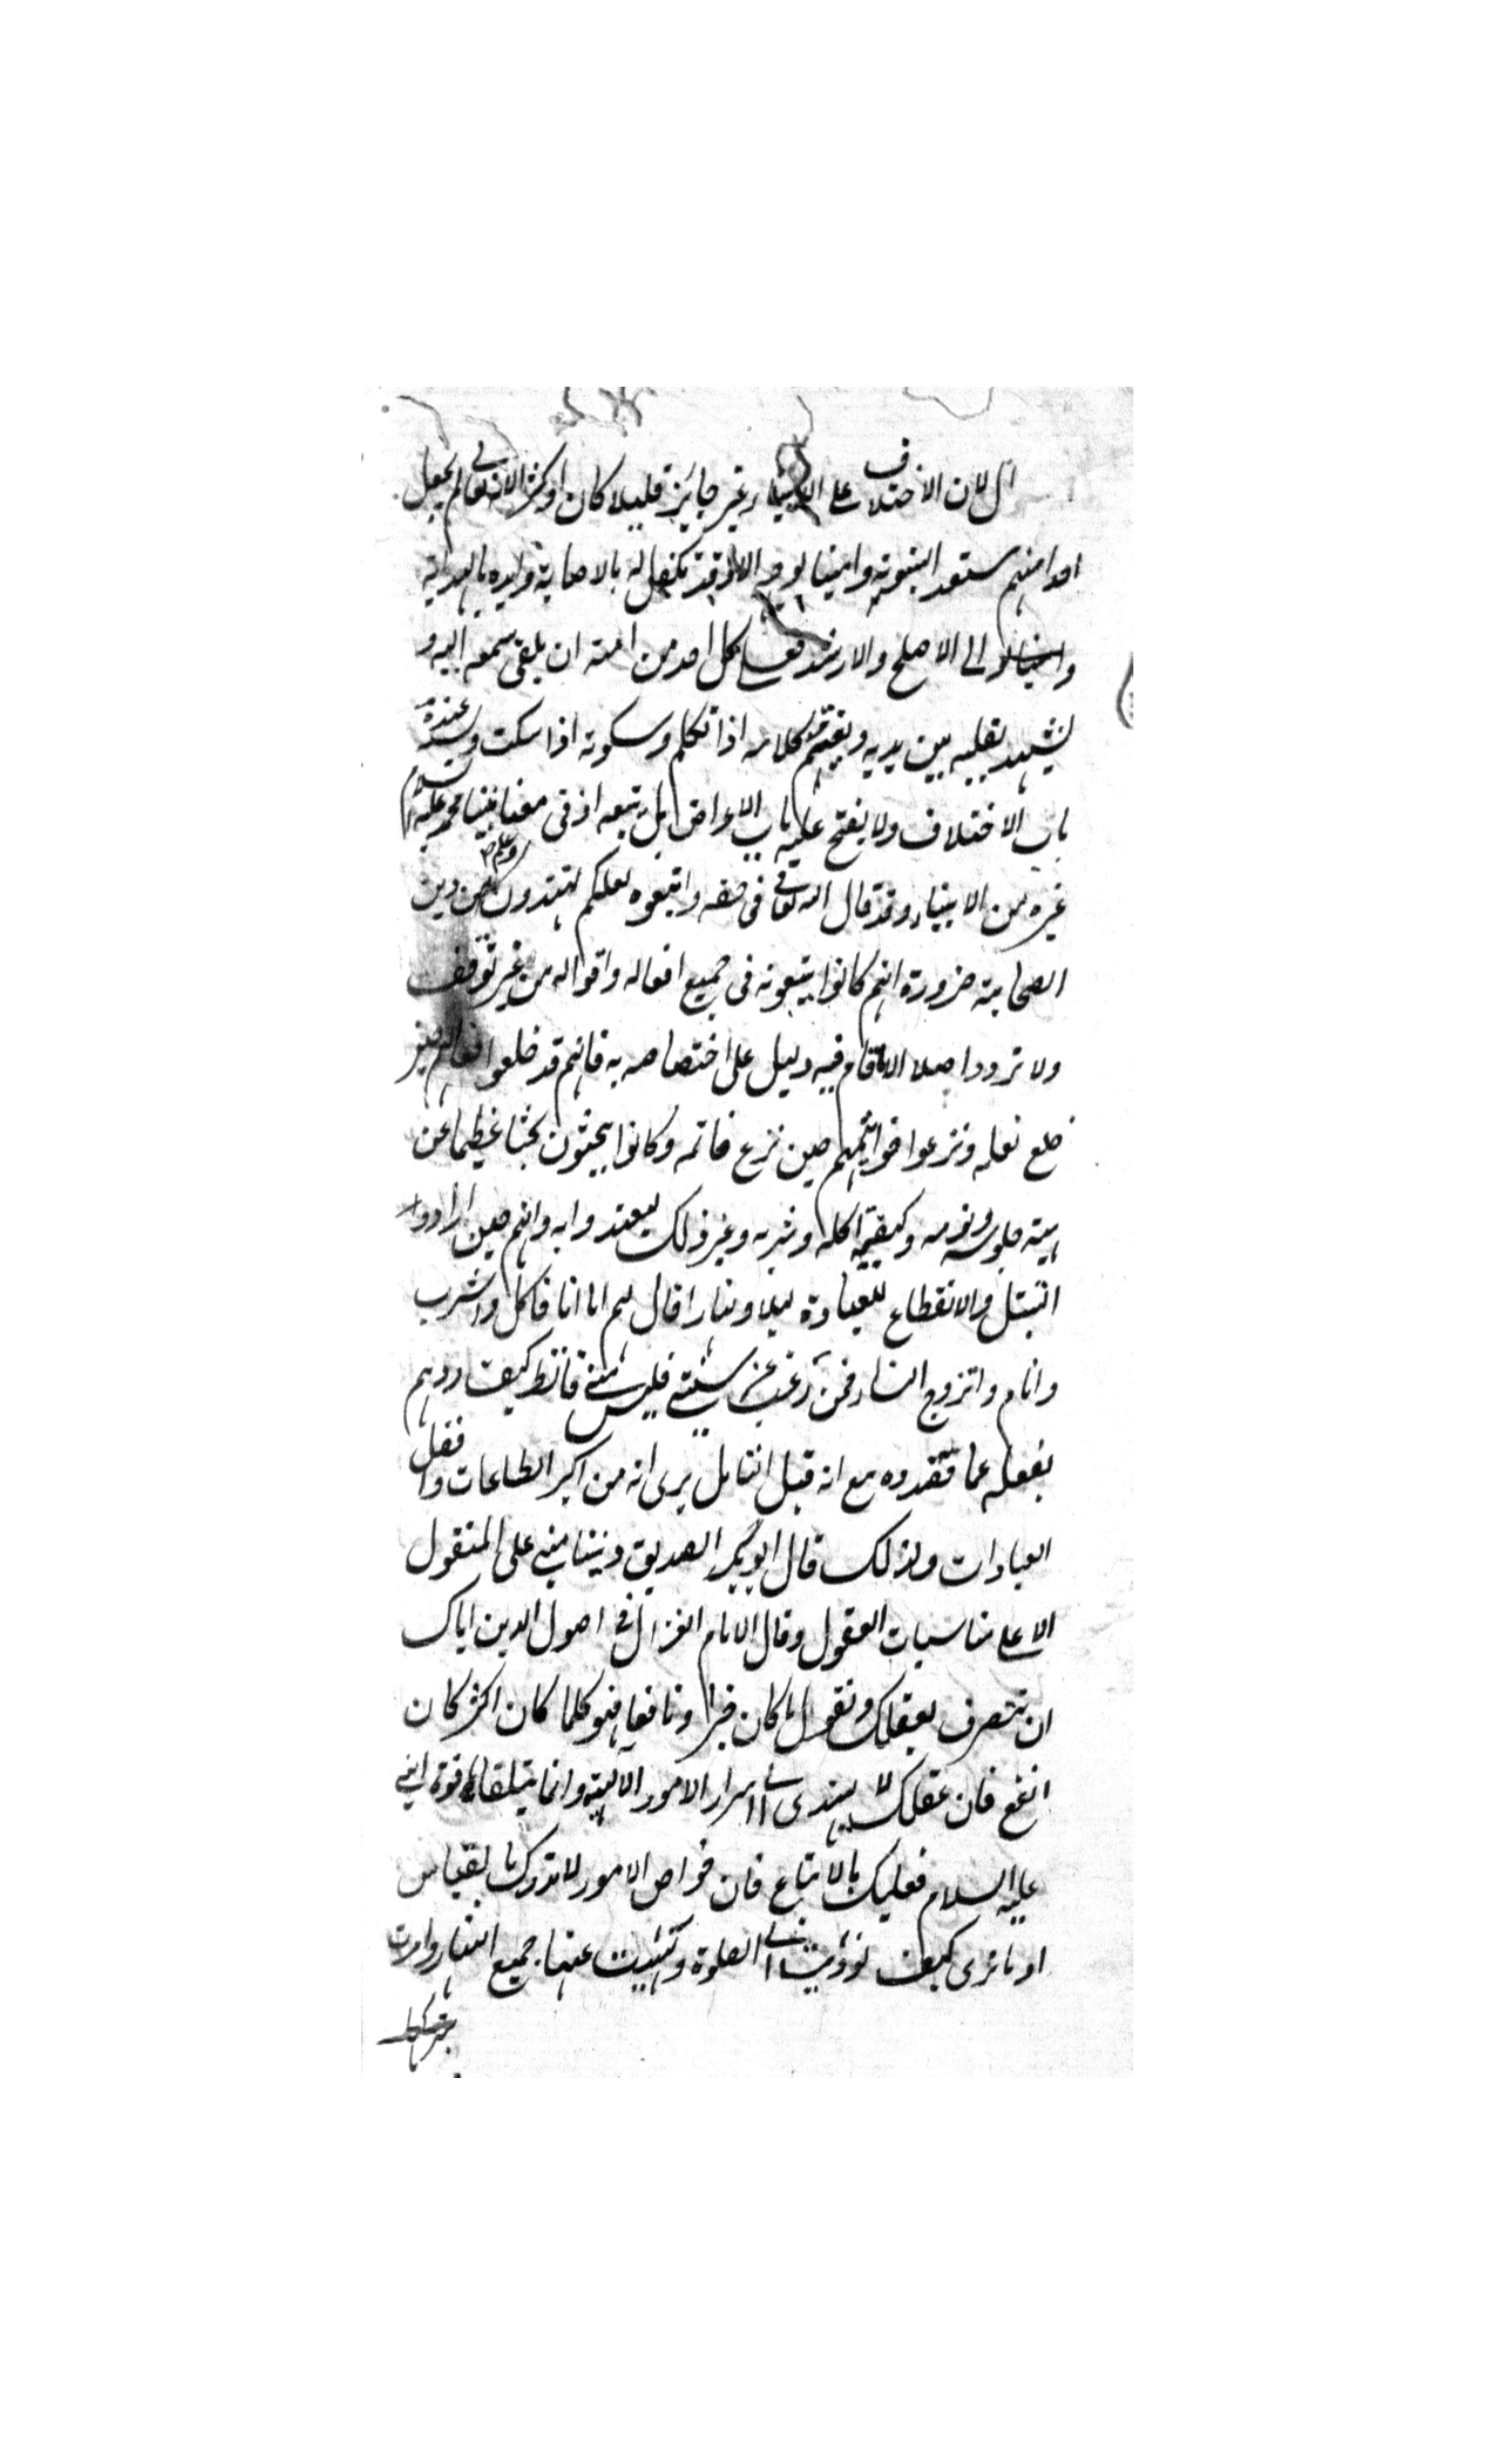 لان الاختلاف على الانبياء غير جايز قليلا كان او كثيرا لانه تعالى لم يجعل
احدا منهم مستعدا لنبوته وامينا لوحيه الا وقد تكفل له بالاصابة وايده بالهداية
الى الاصلح والارشد فعلى كل احد من امته ان يلقى سمعه اليه و
يشهد بقلبه بين يديه ويغتنم كلامه اذا تكلم وسكوته اذا سكت ويسد عنده
باب الاختلاف ولا يفتح عليه باب الاعراض بل يتبعه اذ في معنا نبينا محمد عليه السلام
غيره من الانبياء وقد قال الله تعالى في حقه واتبعوه لعلكم تهتدون وعلم من دين
الصحابة ضرورة انهم كانوا يتبعونه في جميع افعاله واقواله من غير توقف
ولا تردد اصلا الا ما قام فيه دليل على اختصاصه به فانهم قد خلعوا نعالهم حين
خلع نعله ونزعوا خواتيمهم حين نزع خاتمه وكانوا يبحثون بحثا عظيما عن
هيئة جلوسه ونومه وكيفية اكله وشربه وغير ذلك ليقتدوا به وانهم حين ارادوا
التبتل والانقطاع للعبادة ليلا ونهارا قال لهم اما انا فاكل واشرب
وانام واتزوج النساء فمن رغب عن سنتي فليس مني فانظر كيف ردهم
بفعله عما قصدوه مع انه قبل التامل يرى انه من اكبر الطاعات وافضل
العبادات ولذلك قال ابو بكر الصديق ديننا مبني على المنقول
لا على مناسبات العقول وقال الامام الغزالي في اصول الدين اياك
ان تتصرف بعقلك وتقول ما كان خيرا ونافعا فهو كلما كان اكثر كان
انفع فان عقلك لا يهتدى الى اسرار الامور الالهية وانما يتلقاها قوة النبي
عليه السلام فعليك بالاتباع فان خواص الامور لا تدرك بالقياس
او ما ترى كيف نوديت الى الصلوة ونهيت عنها جميع النهار وامرت
بتركها